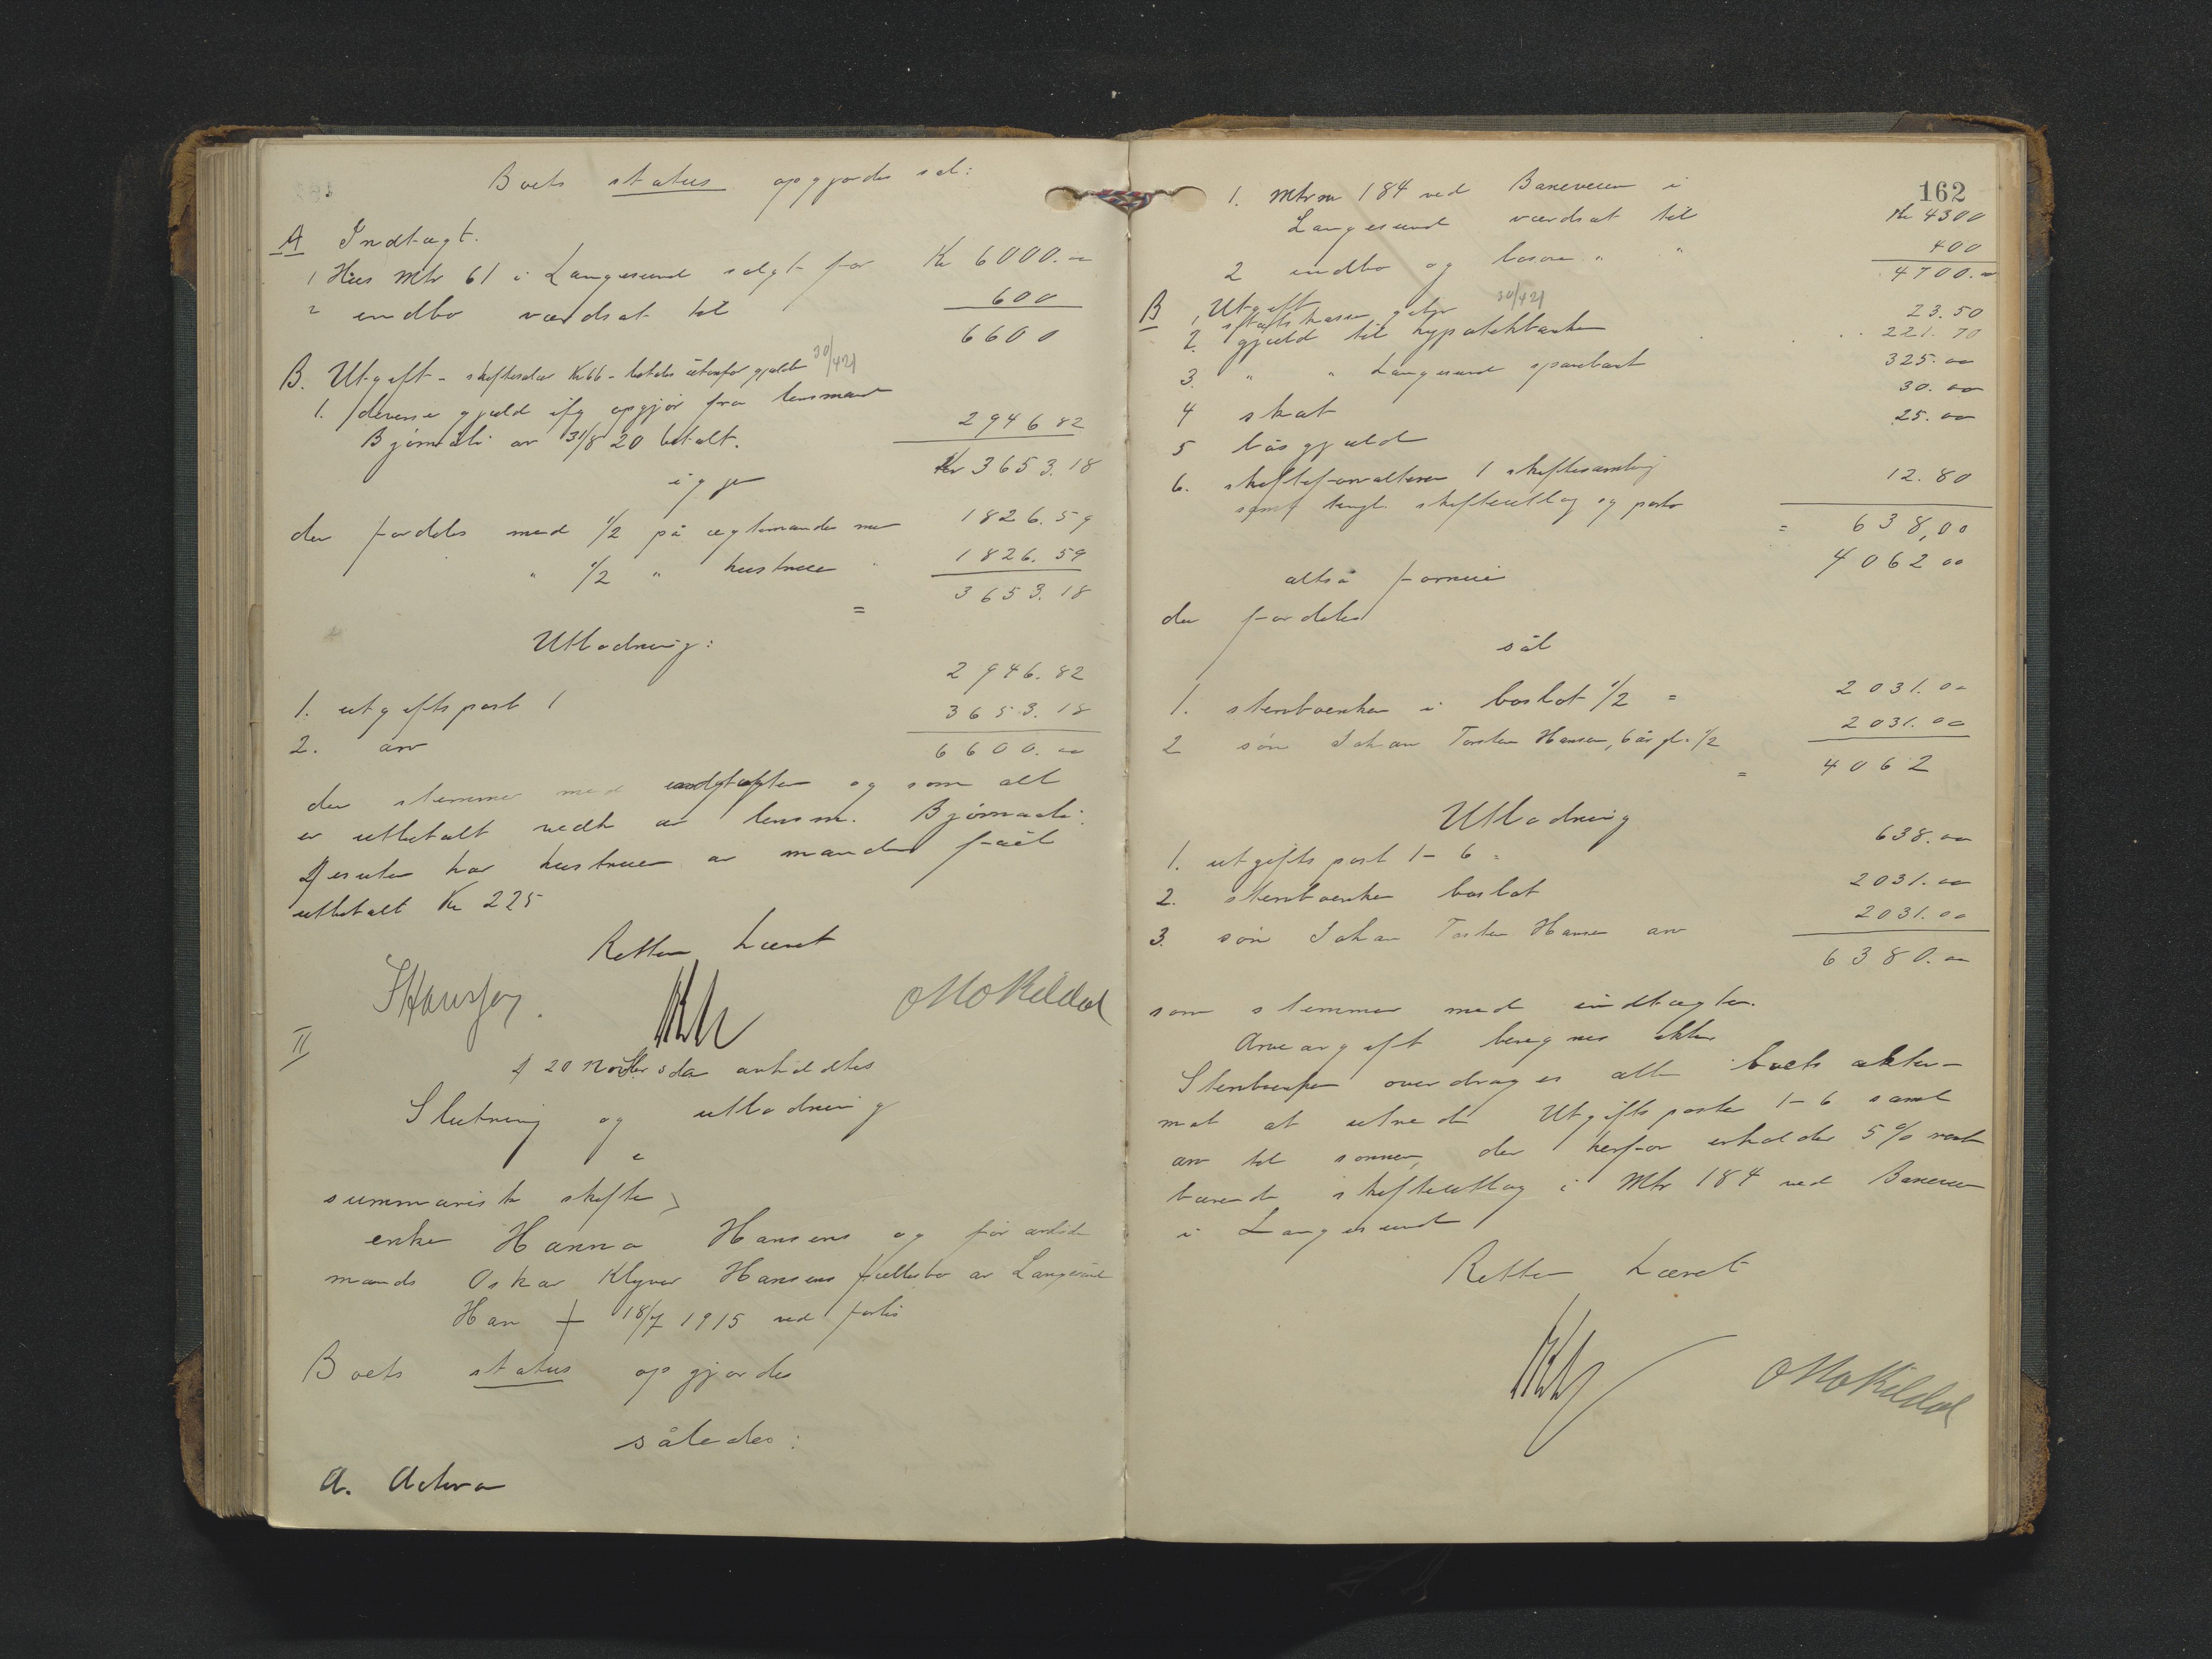 Boets status opgjordes sål:
A Indtægt.
1 Hus Mtr 61 i Langesund solgt for Kr 6000.00
2 indbo værdsat til 600
6600
B. Utgift - skiftesalær Kr 66 - betales utenfor gjælden 30/421
1. diverse gjæld ifg opgjør fra lensmand
Bjørnåli av 31/8 20 betalt. 2946 82
igjen Kr 3653.18
der fordeles med 1/2 på egtemandens 1826.59
" 1/2 " hustruen " 1826.59
= 3653.18
Utlodning:
1. utgiftspost 1 2946.82
2. arv 3653.18
6600.00
der stemmer med indtægten og som alt
er utbetalt vedk av lensm. Bjørnaali.
Desuten har hustruen av manden fåt
utbetalt Kr 225
Retten hævet
SHansen.
Otto Kildal
II
20 Novbr s då avholdtes
Slutning og utlodning
i
summarisk skifte
enke Hanna Hansens og før avdøde
mands Oskar Klyver Hansens fællesbo av Langesund
Han + 18/7 1915 ved forlis
Boets status opgjordes
således:
A. Activa
162
1. Mtr nr 184 ved Baneveien i
Langesund værdsat til Kr 4300
2 indbo og løsøre " " 400
4700.00
B Utgift 30/421
1 skiftets kasse gebyr 23.50
2. gjæld til hypotekbanken 221.70
3. " " Langesund sparebank 325.00
4 skat 30.00
5 lås gjæld 25.00
6. skifteforvalteren 1 skiftesamling
samt tingl. skifteutlæg og porto 12.80
= 638,00
altså formue 4062 00
der fordeles
sål
1. stervboenken i boslot 1/2 = 2031.00
2 søn Johan Torsten Hansen, 6 år gl. 1/2 2031.00
= 4062
Utlodning
1. utgiftspost 1-6 = 638.00
2. stervboenken boslot 2031.00
3. søn Johan Torsten Hansen arv 2031.00
6380.00
som stemmer med indtægten.
Arveavgift beregnes ikke
Stervboenken overdrages alle boets akti-
mot at utrede Utgiftsposter 1-6 samt
arv til sønnen, der herfor erholder 5% rente
bærende skifteutlæg i Mtr 184 ved Baneveien
i Langesund
Retten hævet
Otto Kildal